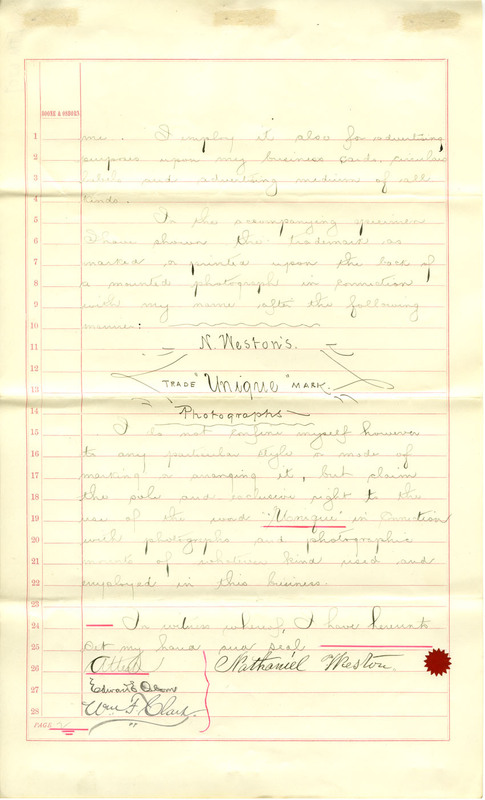 MOORE & OSBORN
1 me. I employ it also for advertising
2 purposes upon my business cards, circulars
3 labels and advertising medium of all
4 kinds.
5 In the accompanying specimen
6 I have shown the trademark as
7 marked or printed upon the back of
8 a mounted photograph in connection
9 with my name after the following
10 manner:
11 N. Weston's.
12
13 TRADE "Unique" MARK.
14 Photographs
15 I do not confine myself however
16 to any particular style or mode of
17 marking or arranging it, but claim
18 the sole and exclusive right to the
19 use of the word "Unique" in connection
20 with photographs and photographic
21 mounts of whatever kind used and
22 employed in this business.
23
24 In witness whereof, I have hereunto
25 set my hand and seal,
26 Attest Nathaniel Weston.
27 Edward
28 Wm F. Clark
PAGE 2